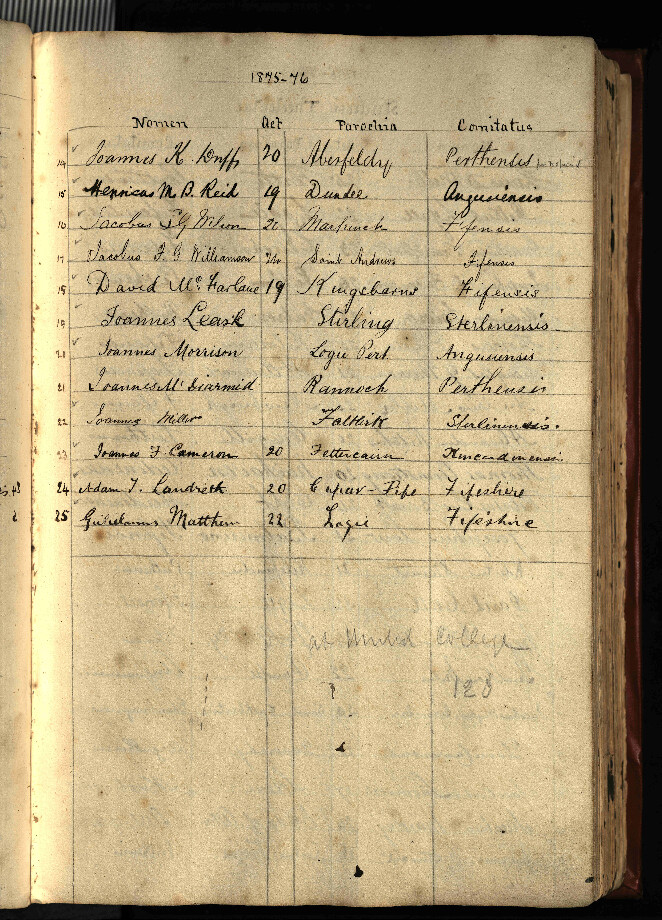 1875-76
Nomen Aet Parochia Comitatus
14 Joannes K. Duff 20 Aberfeldy Perthensis
15 Henricus M. B. Reid 19 Dundee Angusiensis
16 Jacobus G Wilson 20 Markinch Fifensis
17 Jacobus F. G. Williamson Sancti Andreae Fifensis
18 David McFarlane 19 Kingsbarns Fifensis
19 Joannes Leask Stirling Sterlinensis
20 Joannes Morrison Logie Pert Angusiensis
21 Joannes McDiarmid Rannoch Perthensis
22 Joannes Miller Falkirk Sterlinensis.
23 Joannes F. Cameron 20 Fettercairn Kincardinensis
24 Adam T. Landreth 20 Cupar-Fife Fifeshire
25 Gulielmus Matthew 22 Logie Fifeshire
at United College
128